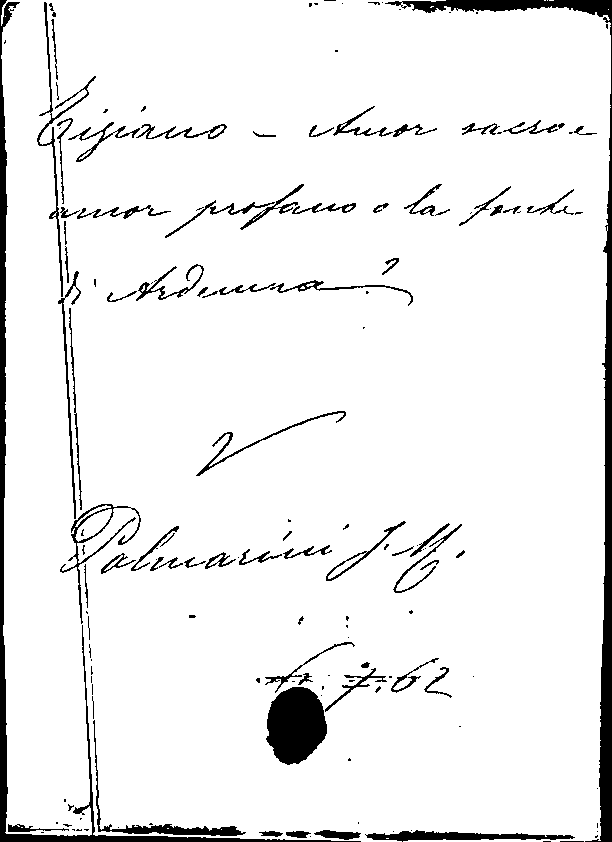 Tiziano – Amor sacro e
amor profano o la fonte
di Ardenna?
V
Palmarini I. M.
7.62